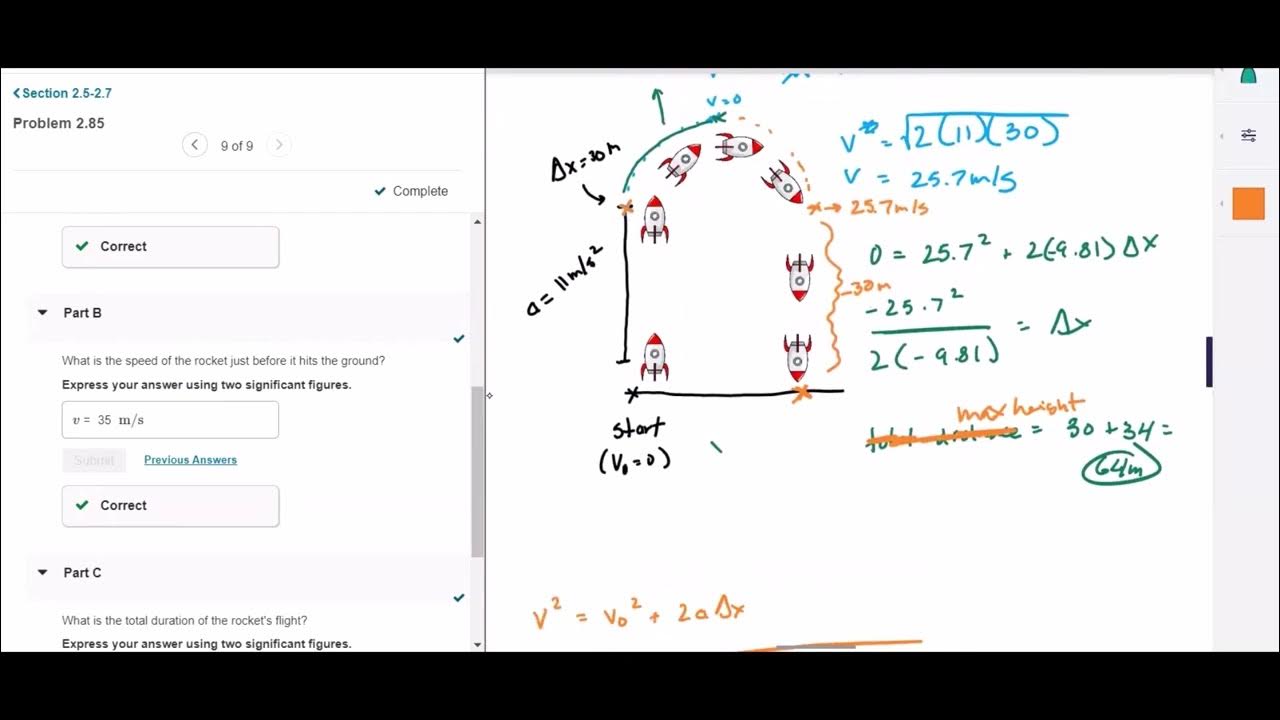 Section 2.5-2.7
Problem 2.85
9 of 9
Complete
Correct
Part B
What is the speed of the rocket just before it hits the ground?
Express your answer using two significant figures.
v = 35 m/s
Submit
Previous Answers
Correct
Part C
What is the total duration of the rocket's flight?
Express your answer using two significant figures.
v=0
Δx=30m
a = 11m/s²
start
(V₀=0)
25.7m/s
-30m
V = √2(11)(30)
V = 25.7m/s
0 = 25.7² + 2(-9.81)Δx
-25.7²
2(-9.81)
= Δx
max height
= 30 + 34 =
64m
V² = V₀² + 2aΔx